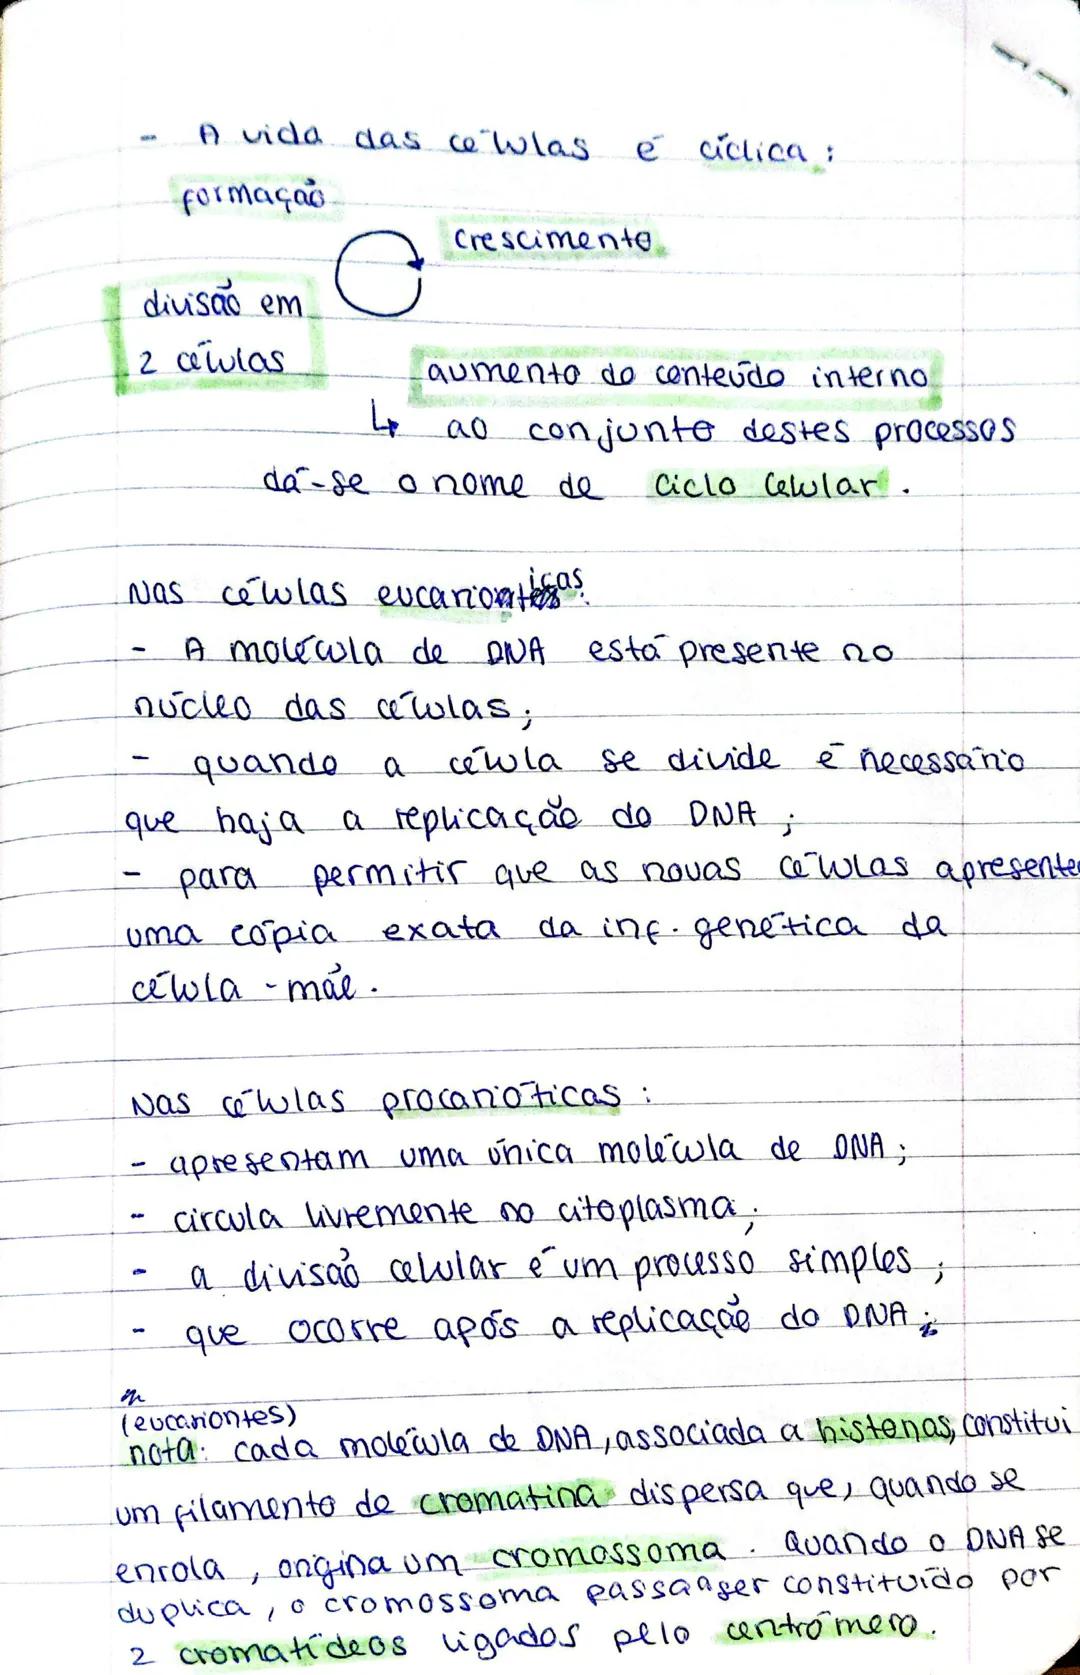 - A vida das células é cíclica :
formação
crescimento
divisão em
2 células
aumento do conteúdo interno
↳ ao conjunto destes processos
dá-se o nome de ciclo celular.
Nas células eucarionticas:
- A molécula de DNA está presente no
núcleo das células;
- quando a célula se divide é necessário
que haja a replicação do DNA ;
- para permitir que as novas células apresente
uma cópia exata da inf. genética da
célula-mãe.
Nas células procarióticas :
- apresentam uma única molécula de DNA;
- circula livremente no citoplasma;
- a divisão celular é um processo simples ;
- que ocorre após a replicação do DNA ;
(eucariontes)
nota: cada molécula de DNA, associada a histonas, constitui
um filamento de cromatina dispersa que, quando se
enrola , origina um cromossoma . Quando o DNA se
duplica , o cromossoma passa a ser constituído por
2 cromatídeos ligados pelo centrómero.